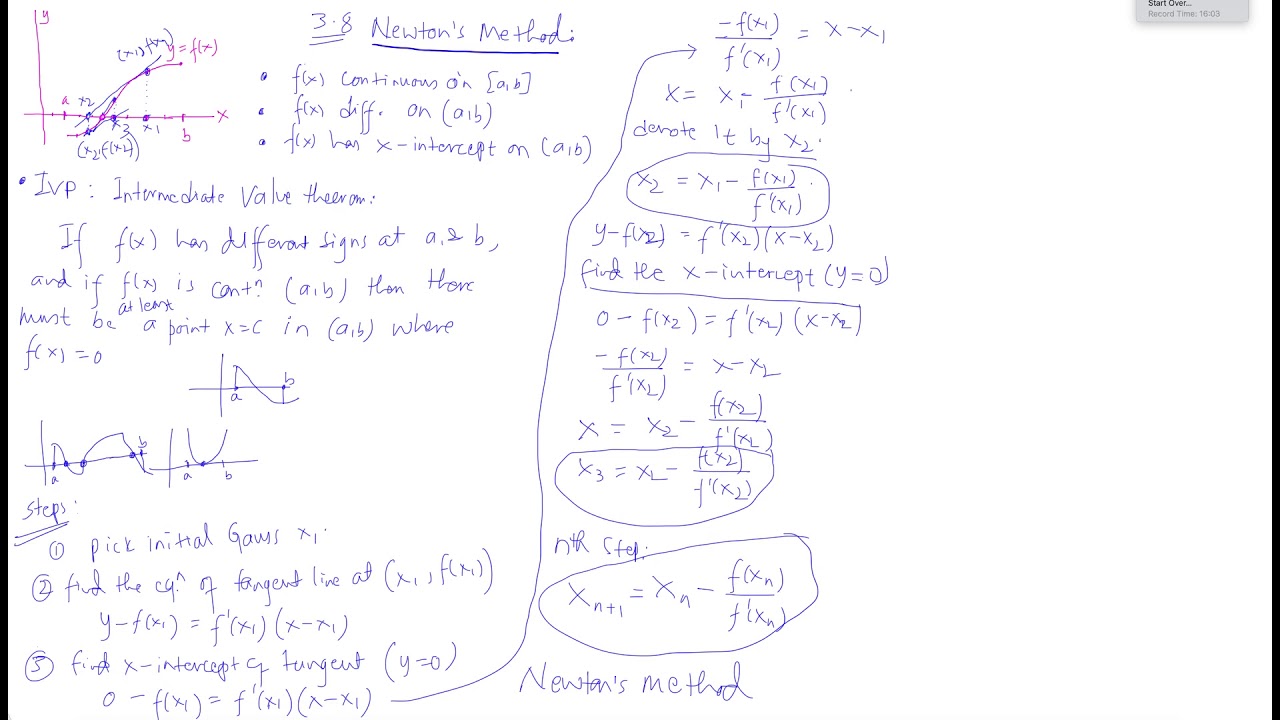 3.8 Newton's Method:
y
(x1, f(x1))
y = f(x)
a x2 x3 x1 b x
(x2, f(x2))
• f(x) continuous on [a,b]
• f(x) diff. on (a,b)
• f(x) has x-intercept on (a,b)
• IVP: Intermediate Value theorem:
If f(x) has different signs at a & b,
and if f(x) is contn. (a,b) then there
must be at least a point x=c in (a,b) where
f(x) = 0
a b
a b a b
Steps:
① pick initial Gauss x1.
② find the eqn of tangent line at (x1, f(x1))
y-f(x1) = f'(x1)(x-x1)
③ find x-intercept of tangent (y=0)
0 - f(x1) = f'(x1)(x-x1)
-f(x1)/f'(x1) = x-x1
x = x1 - f(x1)/f'(x1)
denote it by x2.
x2 = x1 - f(x1)/f'(x1)
y-f(x2) = f'(x2)(x-x2)
find the x-intercept (y=0)
0 - f(x2) = f'(x2)(x-x2)
-f(x2)/f'(x2) = x-x2
x = x2 - f(x2)/f'(x2)
x3 = x2 - f(x2)/f'(x2)
nth step:
xn+1 = xn - f(xn)/f'(xn)
Newton's method
Start Over...
Record Time: 16:03